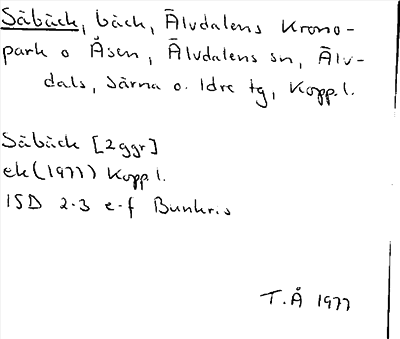 Säbäck, bäck, Älvdalens Krono-
park o Åsen, Älvdalens sn, Älv-
dals, Särna o. Idre tg, Kopp.l.
Säbäck [2ggr]
ek (1977) Kopp.l.
ISD 2.3 e-f Bunkris
T.Å 1977